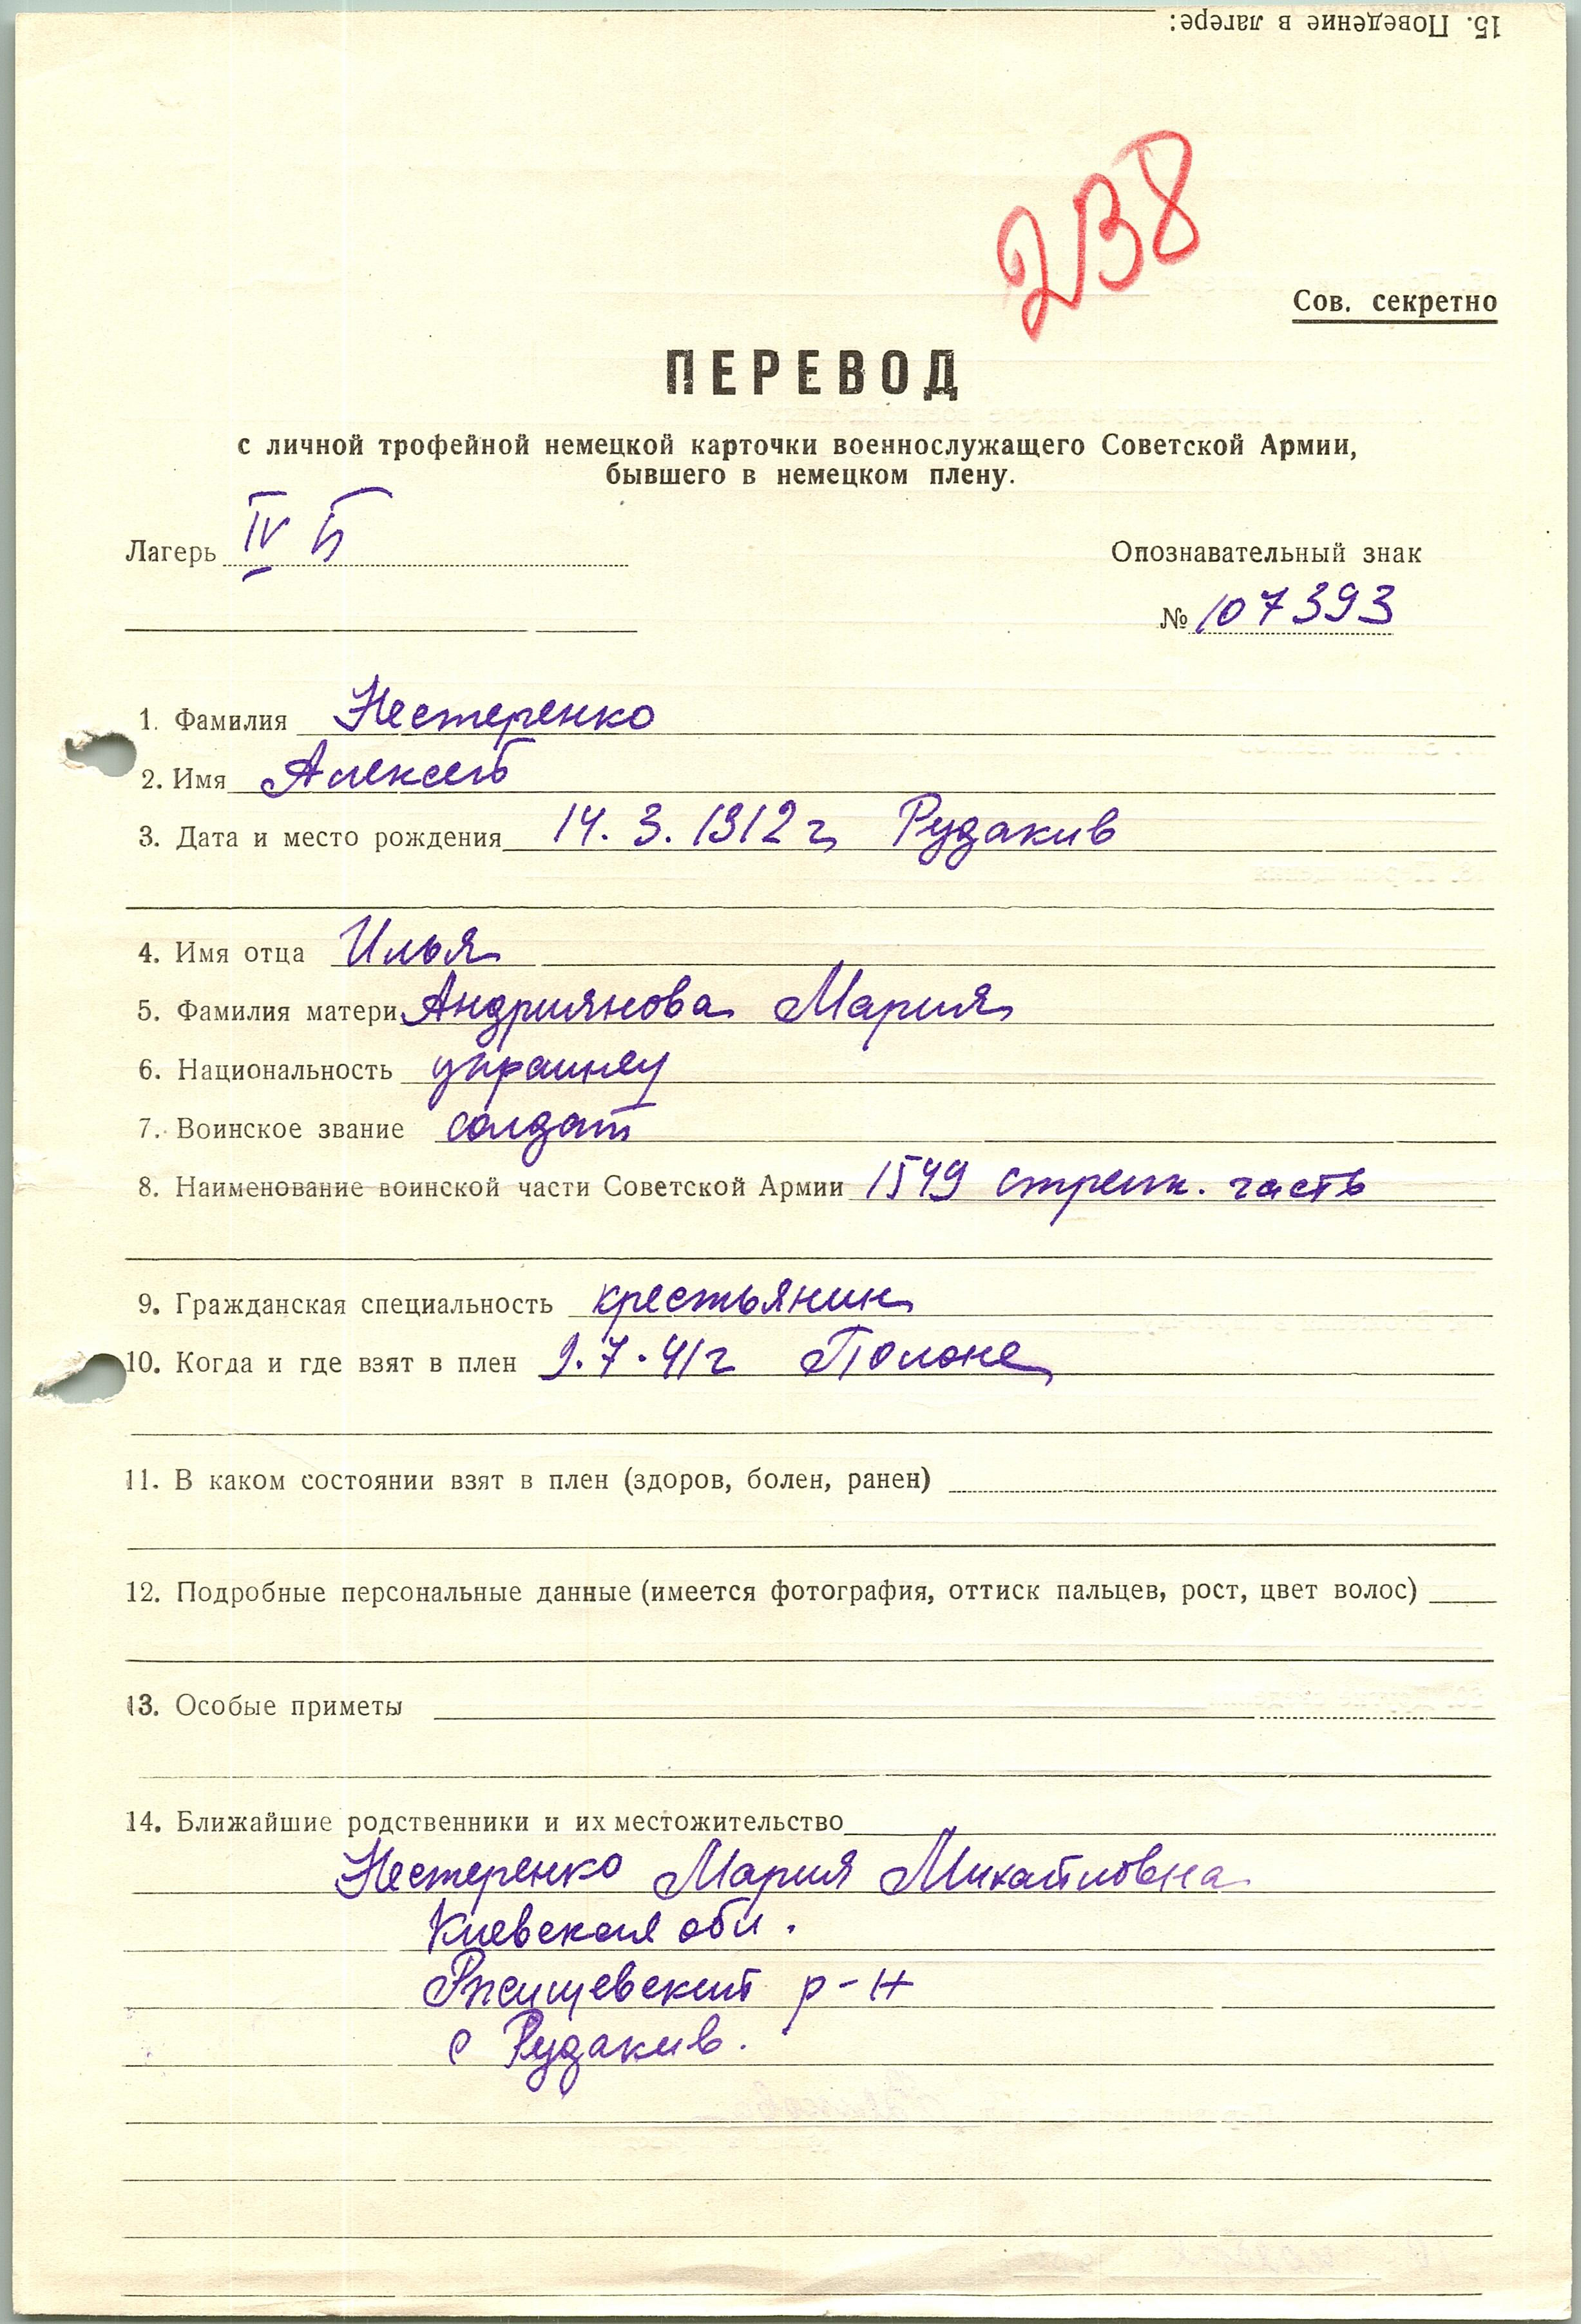 15. Поведение в лагере:
238
Сов. секретно
ПЕРЕВОД
с личной трофейной немецкой карточки военнослужащего Советской Армии,
бывшего в немецком плену.
Лагерь IV Б
Опознавательный знак
№ 107393
1. Фамилия Нестеренко
2. Имя Алексей
3. Дата и место рождения 14. 3. 1912 г. Рудакив
4. Имя отца Илья
5. Фамилия матери Андриянова Мария
6. Национальность украинец
7. Воинское звание солдат
8. Наименование воинской части Советской Армии 1549 стрелк. часть
9. Гражданская специальность крестьянин
10. Когда и где взят в плен 9.7.41г Полоне
11. В каком состоянии взят в плен (здоров, болен, ранен)
12. Подробные персональные данные (имеется фотография, оттиск пальцев, рост, цвет волос)
13. Особые приметы
14. Ближайшие родственники и их местожительство
Нестеренко Мария Михайловна
Киевская обл.
Ржищевский р-н
с Рудакив.